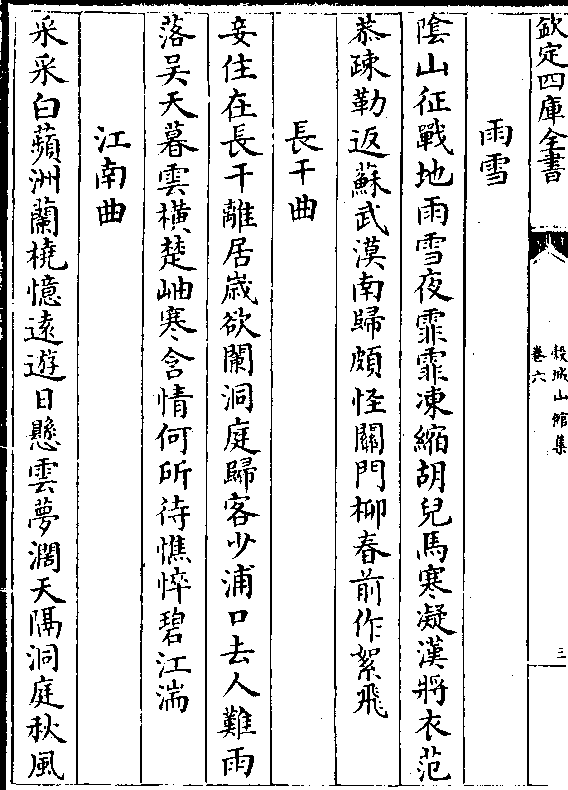 欽定四庫全書
穀城山館集
卷六
三
雨雪
陰山征戰地雨雪夜霏霏凍縮胡兒馬寒凝漢將衣范
恭疎勒返蘇武漠南歸頗怪關門柳春前作絮飛
長干曲
妾住在長干離居歲欲闌洞庭歸客少浦口去人難雨
落吳天暮雲橫楚岫寒含情何所待憔悴碧江湍
江南曲
采采白蘋洲蘭橈憶遠遊日懸雲夢濶天隔洞庭秋風